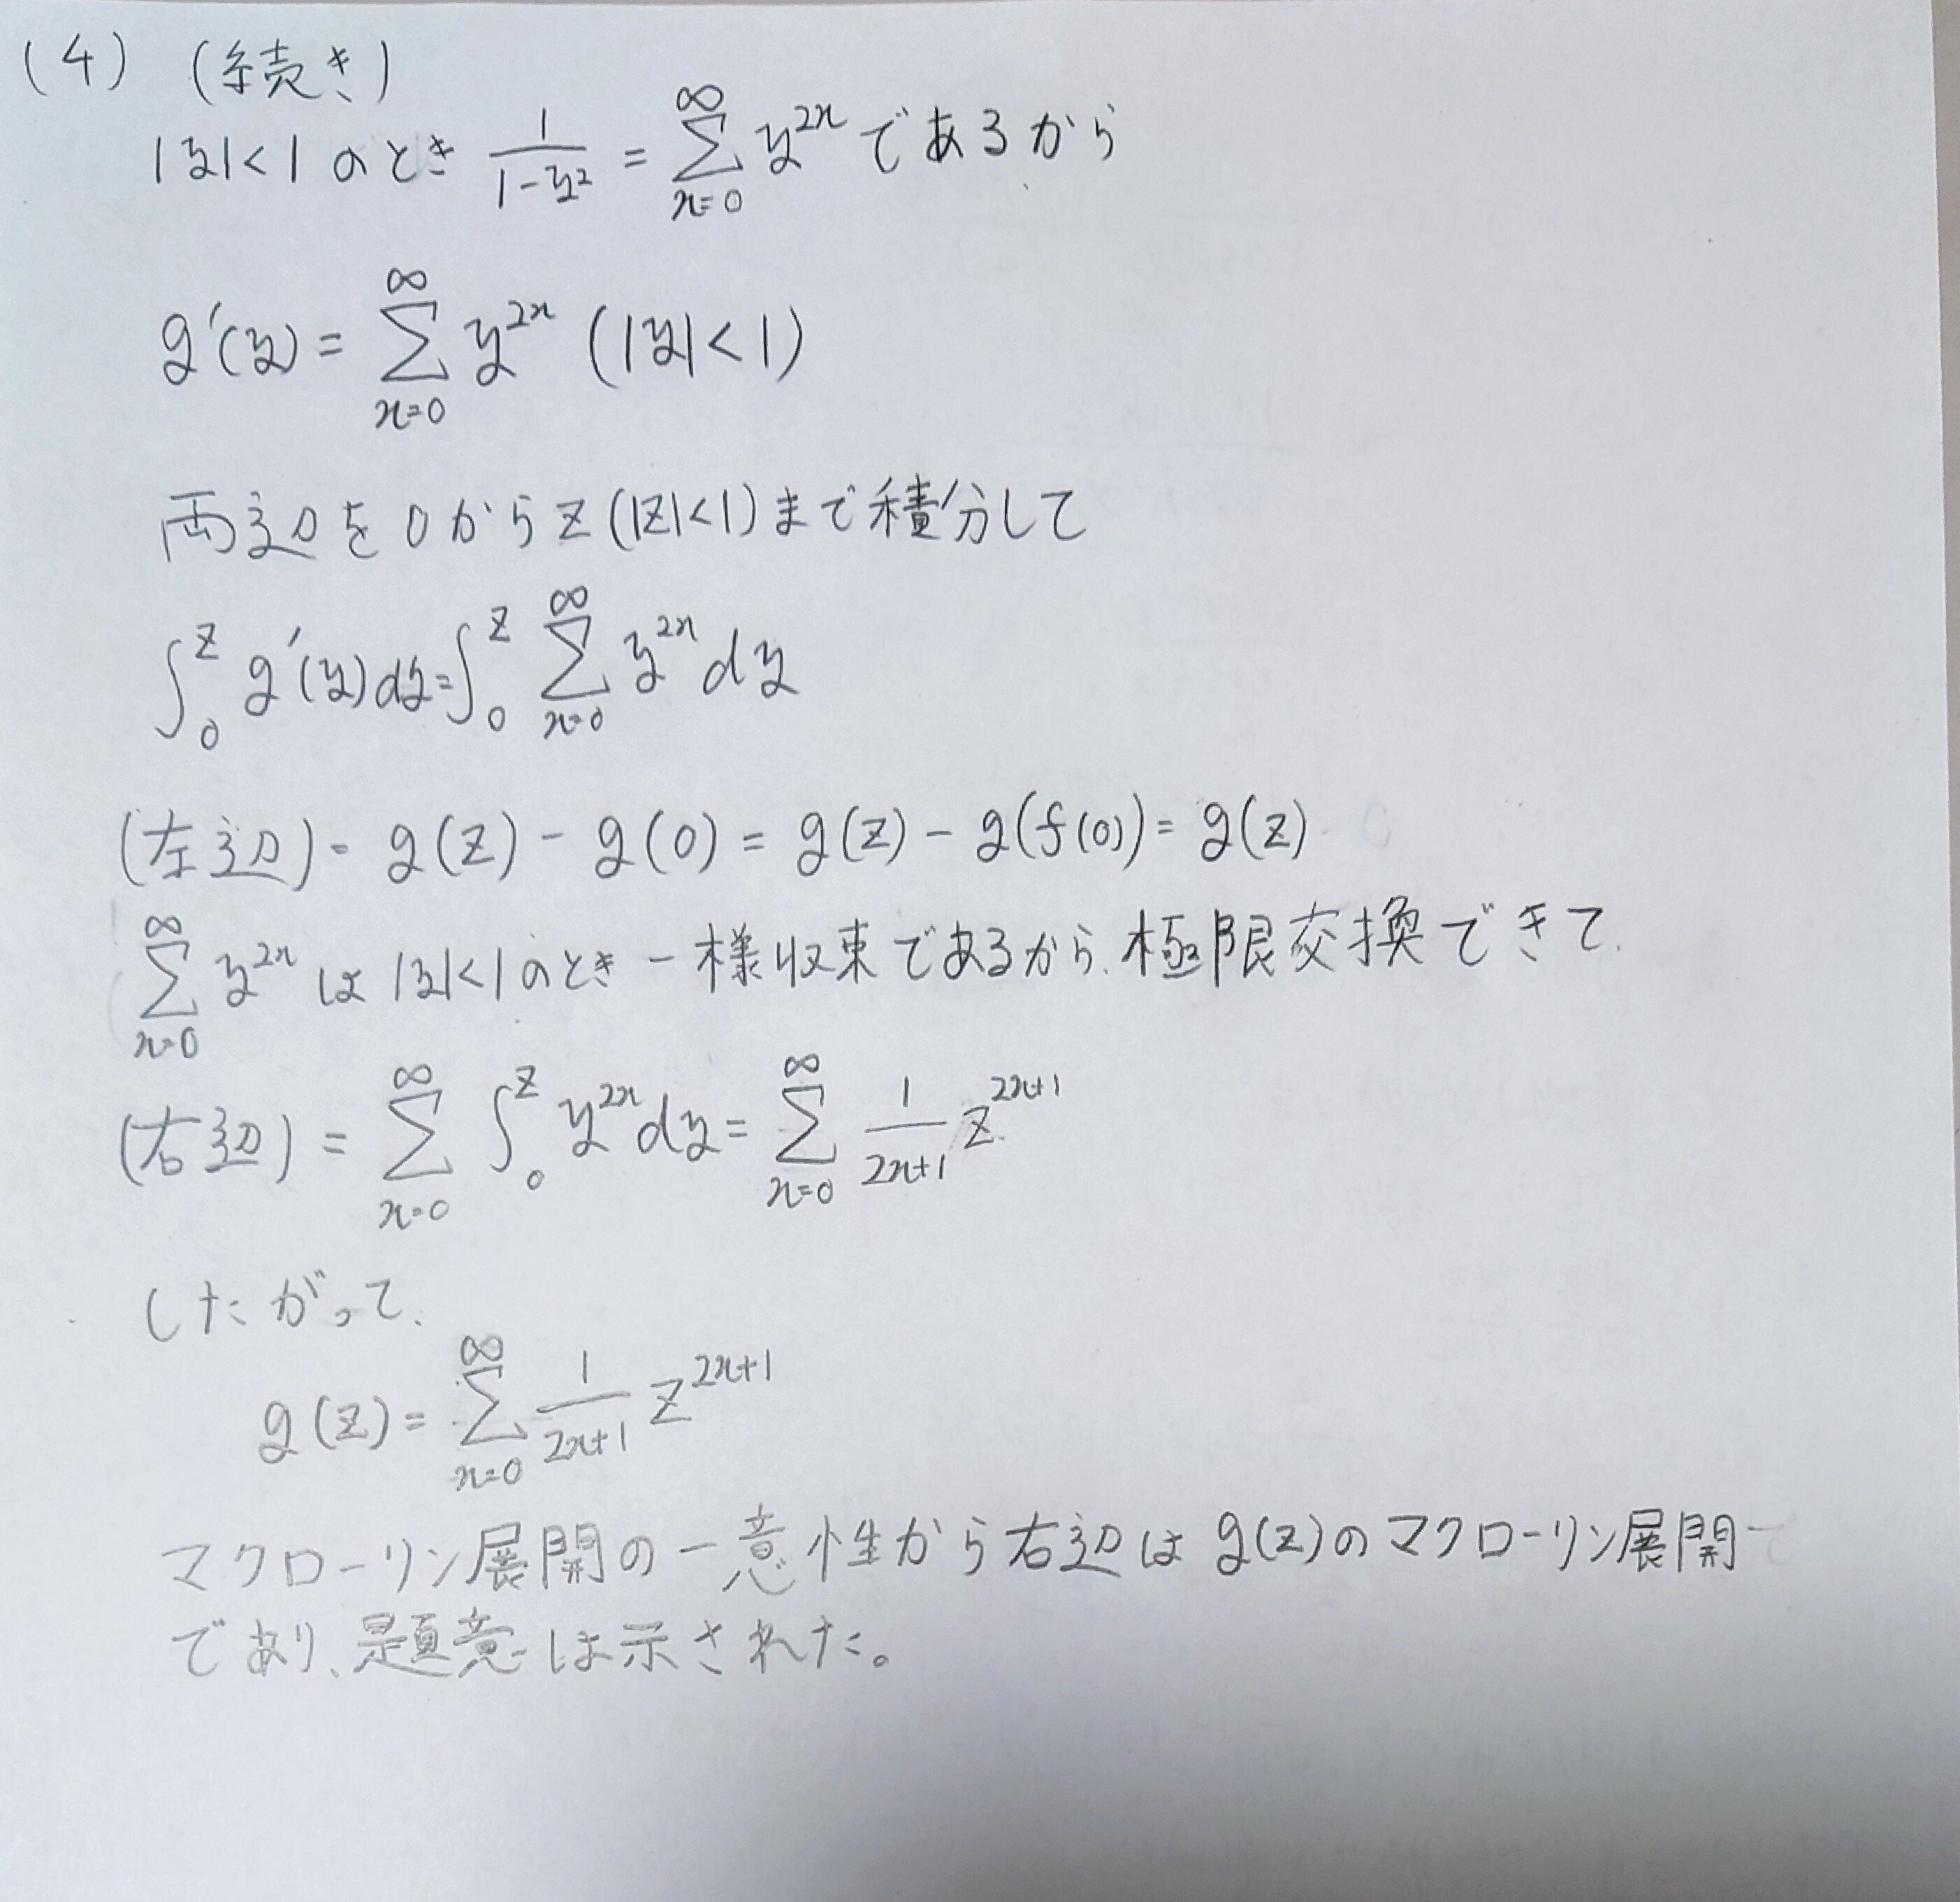 (4) (続き)
|y|<1 のとき 1/(1-y²) = ∑_{n=0}^{∞} y^{2n} であるから
g'(y) = ∑_{n=0}^{∞} y^{2n} (|y|<1)
両辺を0からz(|z|<1)まで積分して
∫_0^z g'(y)dy = ∫_0^z ∑_{n=0}^{∞} y^{2n} dy
(左辺) = g(z) - g(0) = g(z) - g(f(0)) = g(z)
∑_{n=0}^{∞} y^{2n} は |y|<1 のとき一様収束であるから、極限交換できて、
(右辺) = ∑_{n=0}^{∞} ∫_0^z y^{2n} dy = ∑_{n=0}^{∞} 1/(2n+1) z^{2n+1}
したがって、
g(z) = ∑_{n=0}^{∞} 1/(2n+1) z^{2n+1}
マクローリン展開の一意性から右辺は g(z)のマクローリン展開
であり、題意は示された。